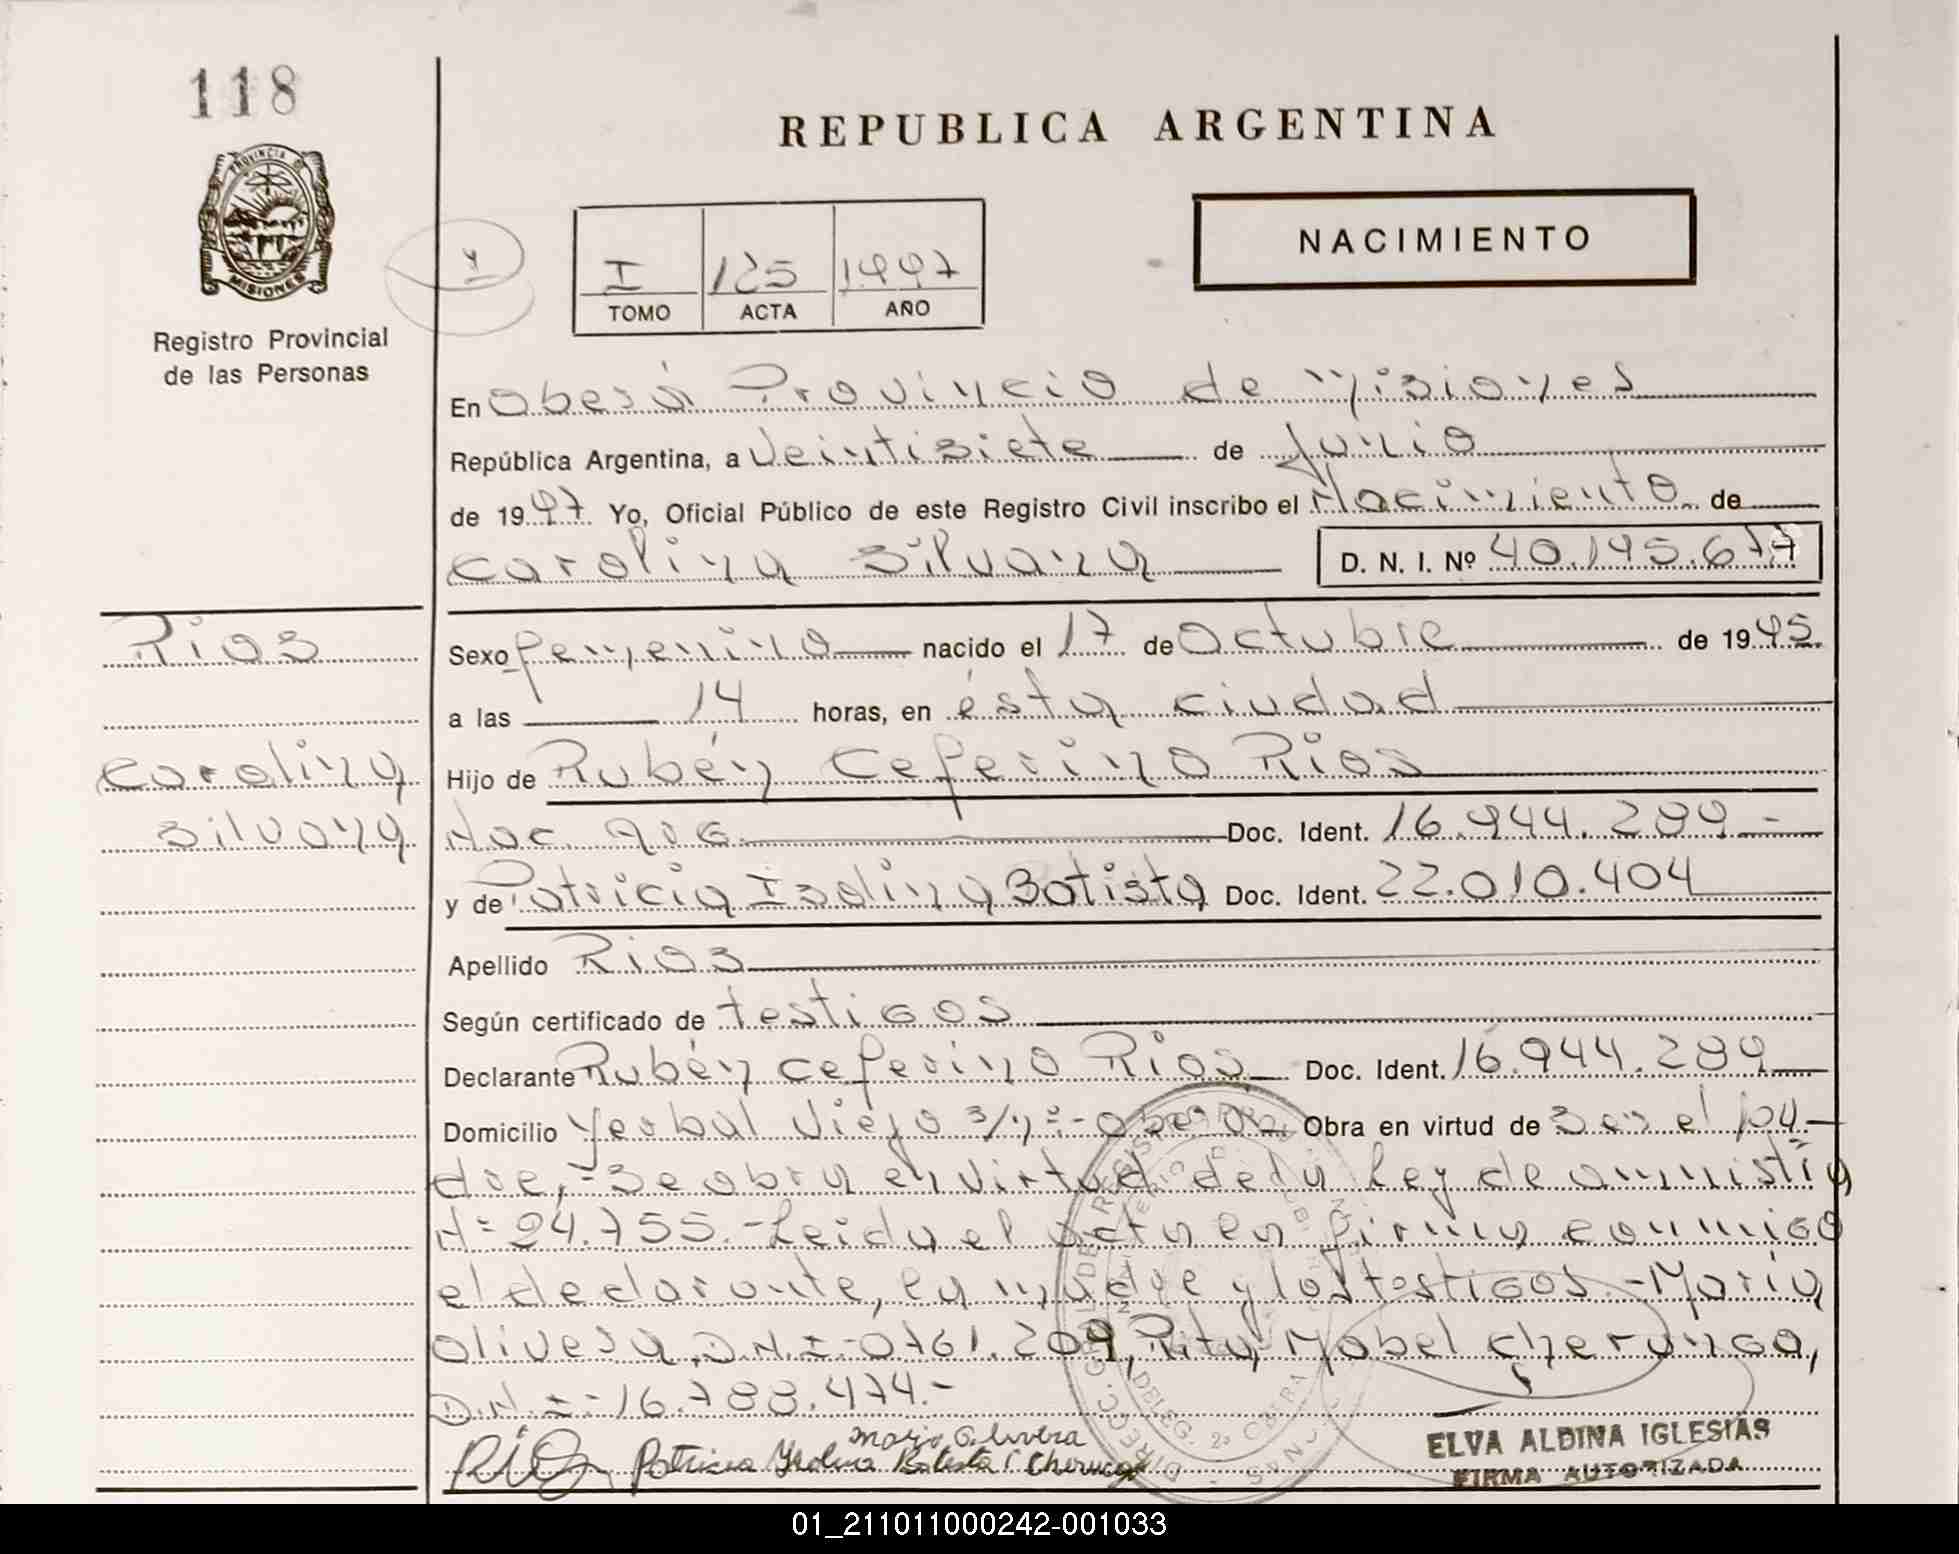 118
REPUBLICA ARGENTINA
PROVINCIA D
MISIONES
Registro Provincial
de las Personas
I 125 1997
TOMO ACTA AÑO
NACIMIENTO
En Oberá Provincia de Misiones
República Argentina, a Veintisiete de Junio
de 1997 Yo, Oficial Público de este Registro Civil inscribo el Nacimiento de
Carolina Silvana D. N. I. Nº 40.195.677
Rios
Sexo femenino nacido el 17 de Octubre de 1995.
a las 14 horas, en ésta ciudad
Carolina
Silvana
Hijo de Rubén Ceferino Rios
Nac. Arg. Doc. Ident. 16.944.289.-
y de Patricia Isolina Batista Doc. Ident. 22.010.404
Apellido Rios
Según certificado de testigos
Declarante Rubén Ceferino Rios Doc. Ident. 16.944.289
Domicilio Yerbal Viejo s/nº.-Oberá Obra en virtud de Ser el pa-
dre,-Se obra en virtud de la Ley de amnistía
Nº 24.755.-Leida el acta la firma conmigo
el declarante, la madre y los testigos.-María
Olivera, D.N.I. 0761.209, Rita Mabel Cherunga,
D.N.I.-16.788.474.-
Rios Patricia Isolina Batista Maria Olivera
ELVA ALDINA IGLESIAS
FIRMA AUTORIZADA
01_211011000242-001033